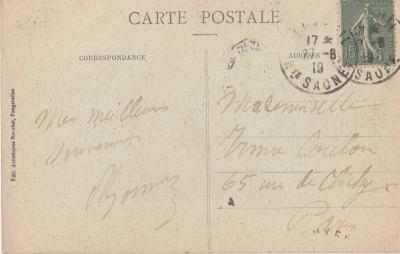 CARTE POSTALE
CORRESPONDANCE
ADRESSE
17 *
27-8
19
Hte SAONE
SAONE
15
Mes meilleurs
souvenirs
Mademoiselle
Coulon
65 rue de Clichy
Paris
Édit. Artistiques Fougerolles